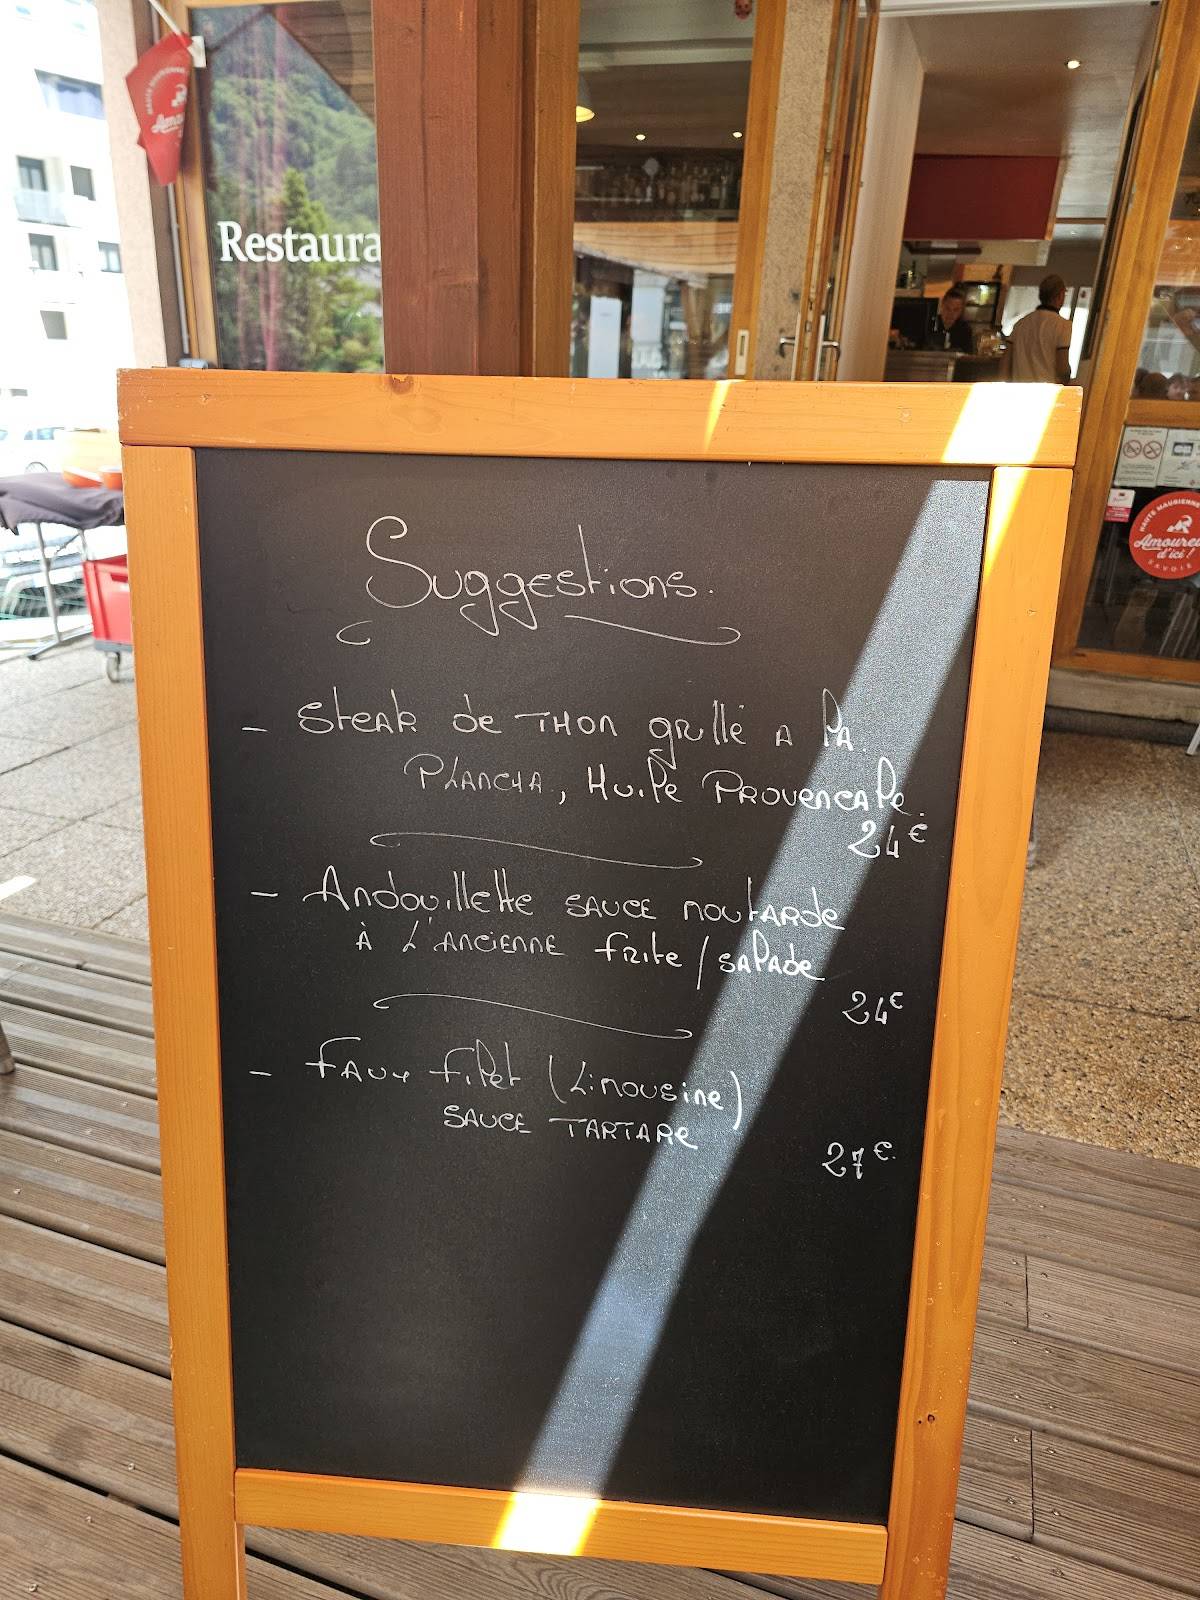 HAUTE MAURIENNE
Restaura
Suggestions.
- Steak de THON grillé A la
PLANCHA, Huile PROVENCALe.
24€
- Andouillette SAUCE MOUTARDE
À L'ANCIENNE frite/SALADE
24€
- FAUX filet (Limousine)
SAUCE TARTARE
27€
HAUTE MAURIENNE
Amoureu
d'ici !
SAVOIE